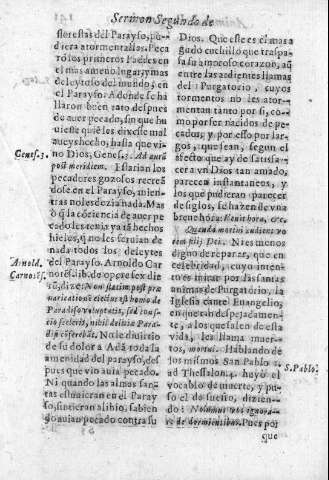 Sermon Segundo de
florestas del Parayso, pu-
diera atormentallo. Peca
rõ los primeros Padres en
el mas ameno lugar, y mas
deleytoso del mundo; en
el Parayso. A donde se ha
llaron buen rato despues
de auer pecado, sin que hu
uiesse quiẽ les dixesse mal
aueys hecho, hasta que vi-
no Dios, Genes. 3. Ad aurã
post meridiem. Estarian los
pecadores gozosos recreã
dose en el Parayso, mien-
tras no les dezia nada. Mas
õ q̃ la cõciencia de auer pe
cado les tenia ya tã hechos
hieles, q̃ no les seruian de
nada todos los deleytes
del Parayso. Arnoldo Car
notẽse lib. de opere sex die
rũ, dize: Non statim post præ
uaricationis eiectus est homo de
Paradiso voluptatis, sed con-
scio sceleris, nihil delitiæ Para-
disi
No le diuirtio
de su dolor a Adã toda la
amenidad del parayso, des
pues que vio auia pecado.
Ni quando las almas san-
tas estuuieran en el Paray
so, sintieran aliuio, sabien
do auian pecado contra su
Genes. 3.
Arnold.
Carnotẽs.
Dios. Que este es el mas a
gudo cuchillo que traspas-
sa su amoroso coraçon, aũ
entre las ardientes llamas
del Purgatorio, cuyos
tormentos no les ator-
mentan tanto por si, co-
mo por ser nacidos de pe-
cados; y por esso por lar-
gos, que sean, segun el
afecto que ay de satisfa-
cer a vn Dios tan amado,
parecen instantaneos, y
los que pudieran parecer
de siglos, se hazen de vna
breue hora: Venit hora, &c.
Quando mortui audient vo
cem filij Dei. Ni es menos
digno de reparar, que en
celebridad, cuyo inten-
to es mirar por las santas
animas de Purgatorio, la
Iglesia cante Euangelio,
en que tan despejadamen-
te, a los que salen de esta
vida, les llama muer-
tos, mortui. Hablando de
los mismos San Pablo 1.
ad Thessalon. 4. huyò el
vocablo de muerte, y pu-
so el de sueño, dizien-
do: Nolumus vos ignora-
re de dormientibus. Pues por
S. Pablo.
que